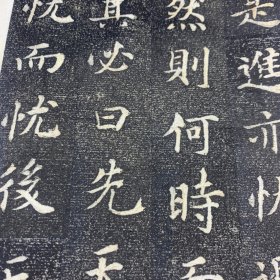 是進亦忧
然則何時
其必曰先
忧而忧後